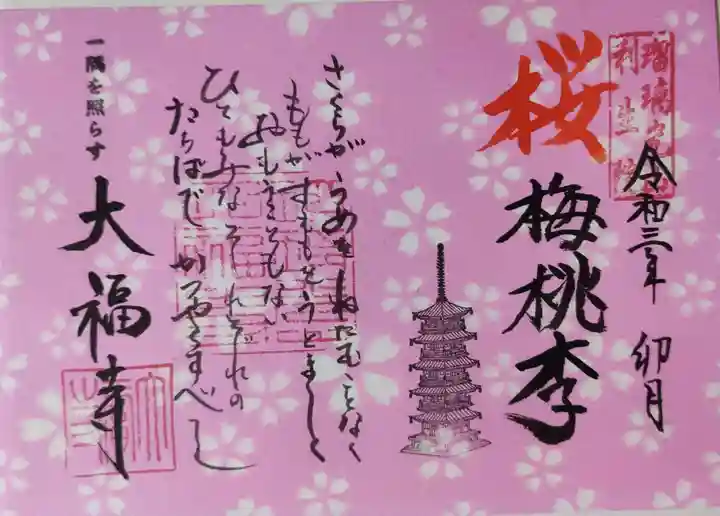 令和三年 卯月
桜
梅桃李
さくらがうめをねたむことなく
ももがすももをうとましく
おもうこともない
ひともみなそれぞれの
たちばでかつやくすべし
一隅を照らす
大福寺